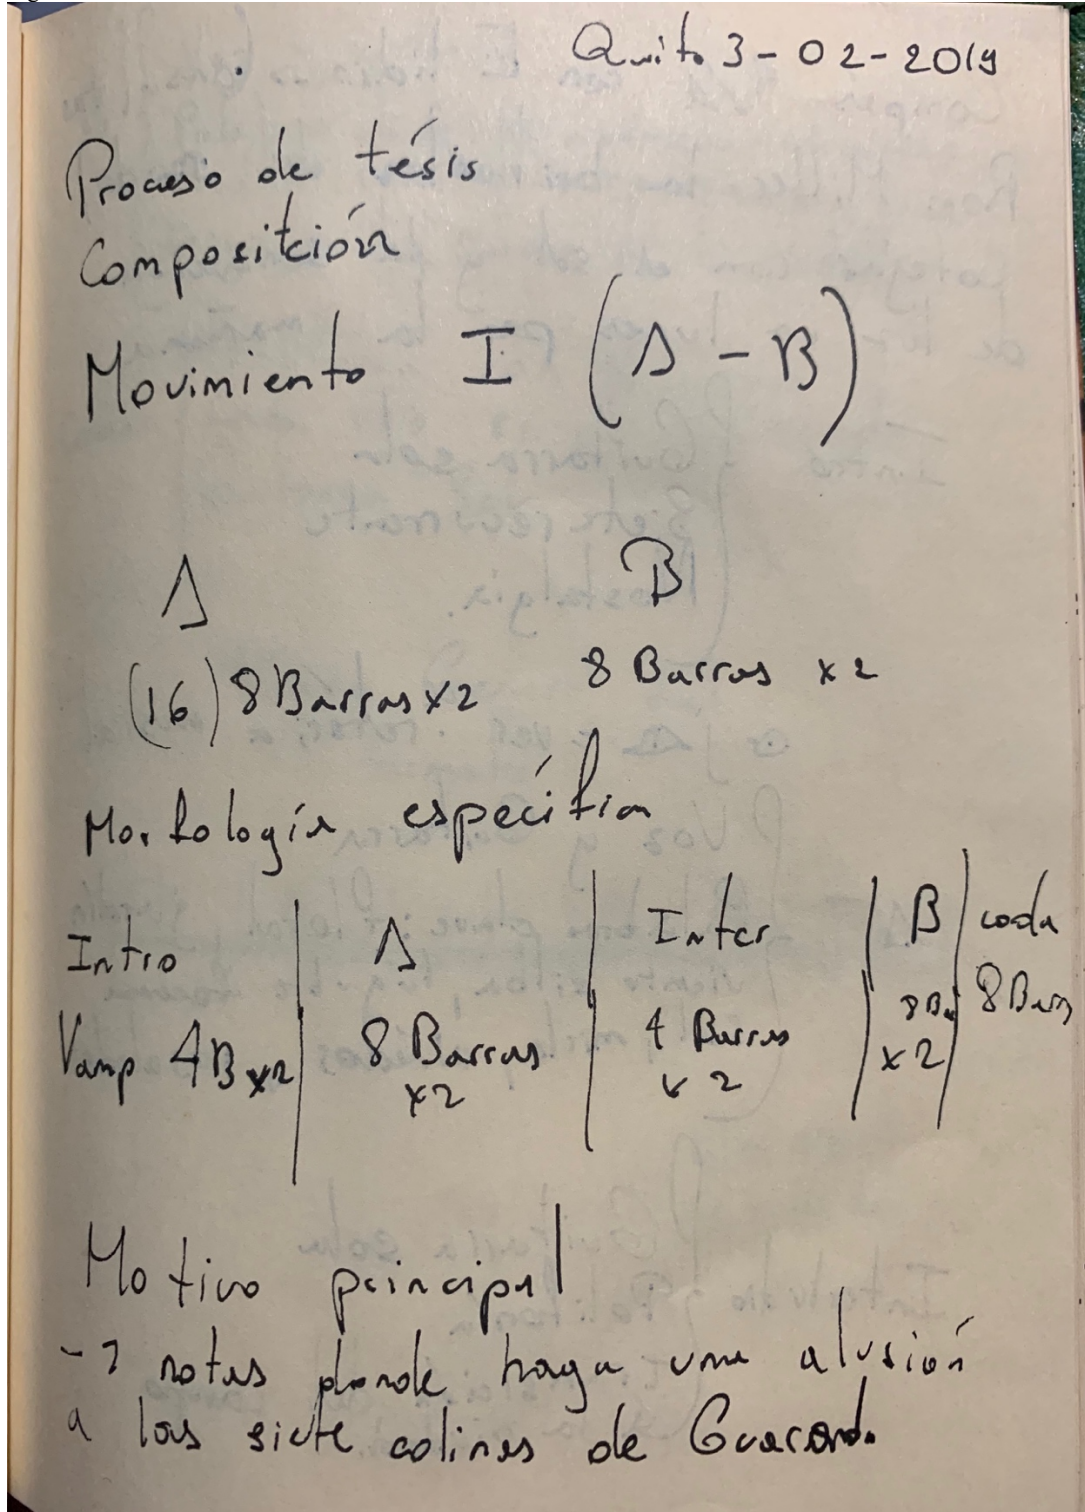 Quito 3-02-2019
Proceso de tésis
Composición
Movimiento I (A - B)
A B
(16) 8 Barras x2 8 Barras x2
Morfología específica
Intro | A | Inter | B | coda
Vamp 4B x2 | 8 Barras x2 | 4 Barras x2 | 8 Ba x2 | 8 Bars
Motivo principal
-7 notas donde haga una alusión
a las siete colinas de Guaranda